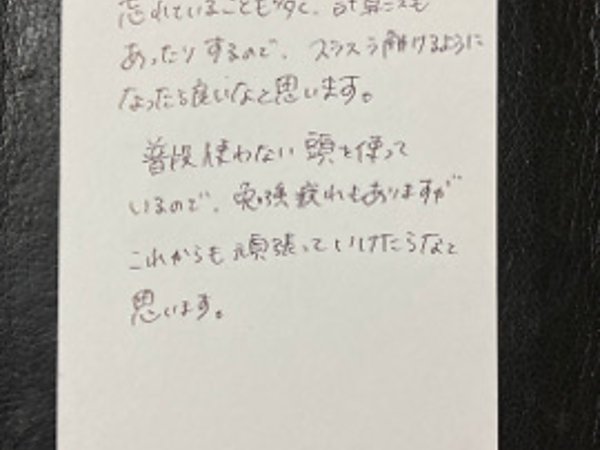 忘れていることも多く、計算ミスも
あったりするので、スラスラ解けるように
なったら良いなと思います。
普段使わない頭を使って
いるので、勉強疲れもありますが
これからも頑張っていけたらなと
思います。